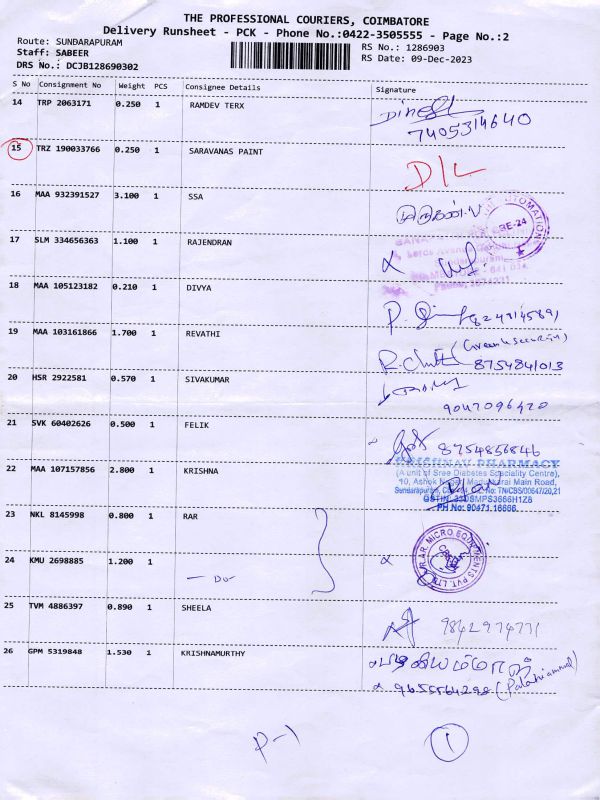 THE PROFESSIONAL COURIERS, COIMBATORE
Delivery Runsheet - PCK - Phone No.:0422-3505555 - Page No.:2
Route: SUNDARAPURAM
Staff: SABEER
DRS No.: DCJB128690302
RS No.: 1286903
RS Date: 09-Dec-2023
S No Consignment No Weight PCS Consignee Details Signature
14 TRP 2063171 0.250 1 RAMDEV TERX Dinesh
7405314640
15 TRZ 190033766 0.250 1 SARAVANAS PAINT D/L
16 MAA 932391527 3.100 1 SSA
17 SLM 334656363 1.100 1 RAJENDRAN
18 MAA 105123182 0.210 1 DIVYA
19 MAA 103161866 1.700 1 REVATHI
8754841013
20 HSR 2922581 0.570 1 SIVAKUMAR
9047096420
21 SVK 60402626 0.500 1 FELIK 8754856846
22 MAA 107157856 2.800 1 KRISHNA
KRISHNAV PHARMACY
(A unit of Sree Diabetes Speciality Centre),
10, Ashok Nagar, Madukkarai Main Road,
PH No: 90471 16666
23 NKL 8145998 0.800 1 RAR
24 KMU 2698885 1.200 1 - Do -
25 TVM 4886397 0.890 1 SHEELA 9842974771
26 GPM 5319848 1.530 1 KRISHNAMURTHY
9655564298 (Palaniammal)
P-1
1